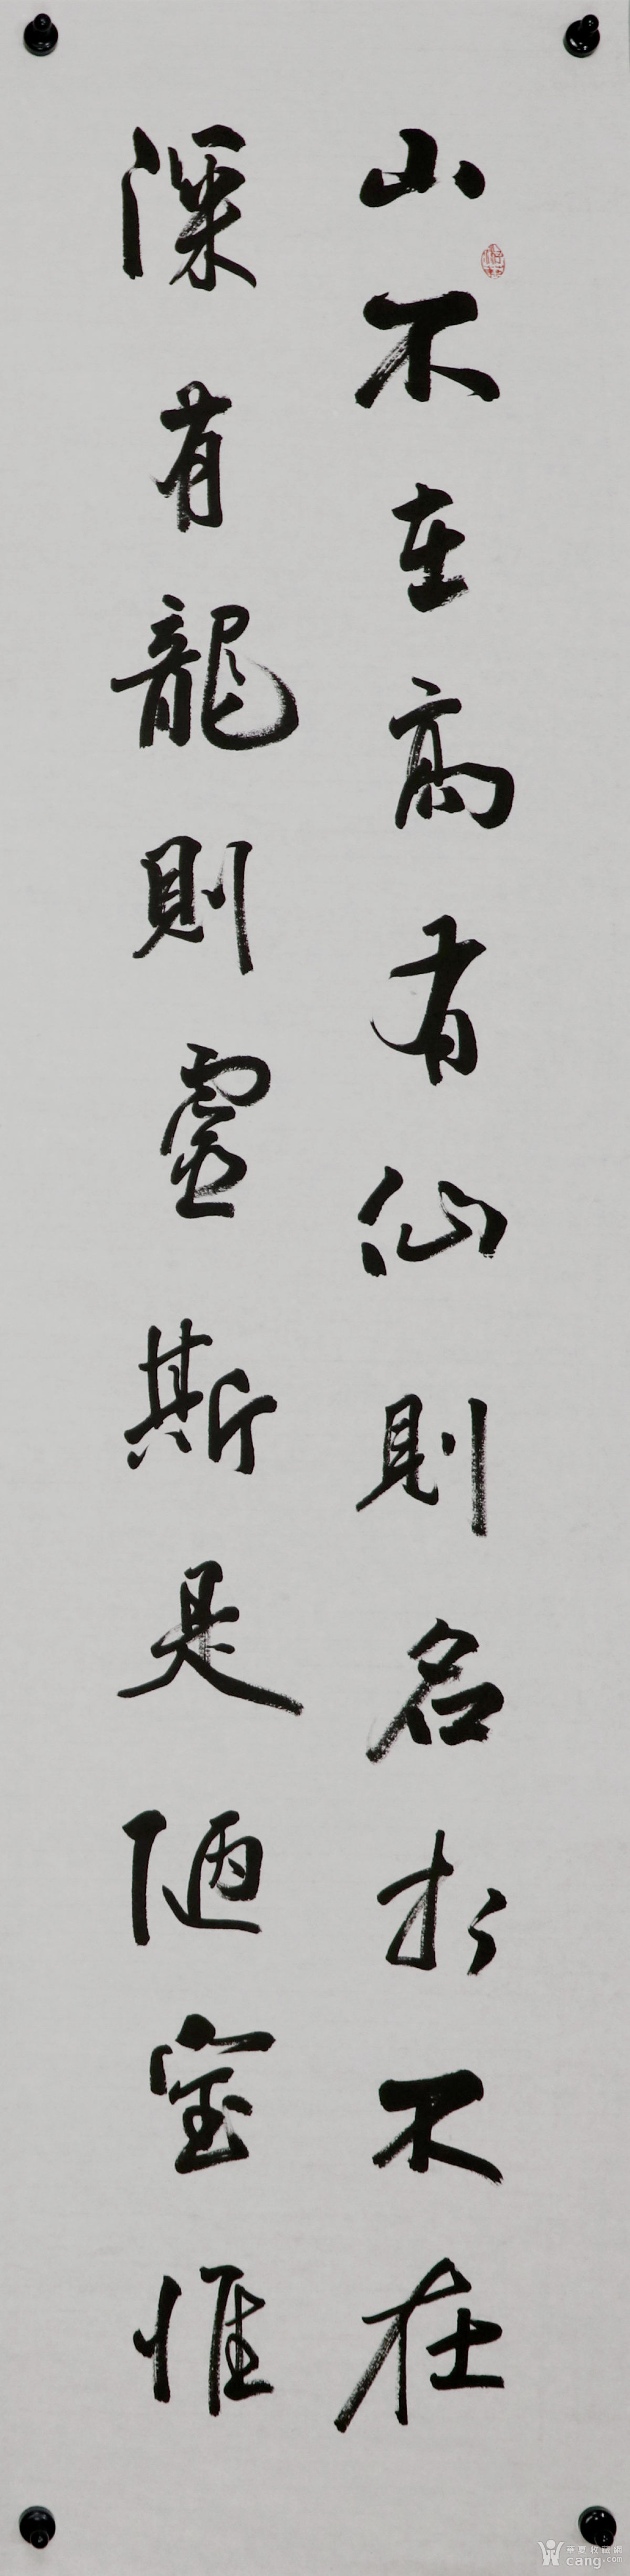 山不在高有仙則名水不在
深有龍則靈斯是陋室惟
華夏收藏網
cang.com